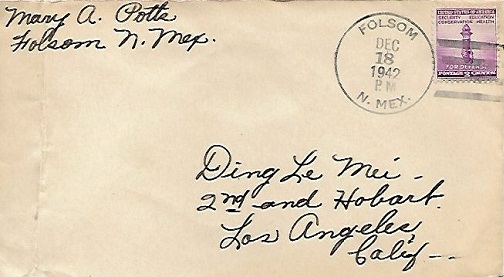 Mary A. Potts
Folsom N. Mex.
FOLSOM
DEC
18
1942
P M
N. MEX.
UNITED STATES OF AMERICA
SECURITY EDUCATION
CONSERVATION HEALTH
FOR DEFENSE
POSTAGE 3 CENTS
Ding Le Mei -
2nd and Hobart.
Los Angeles,
Calif --